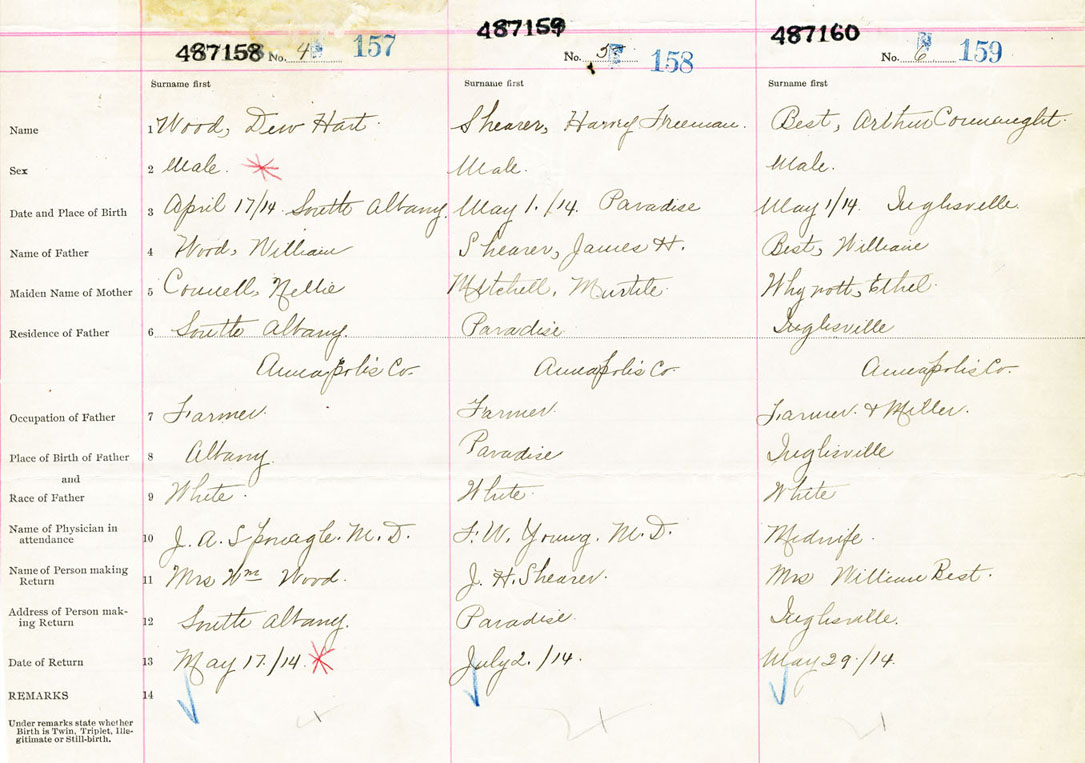 487158 No. 4 157 487159 No. 5 158 487160 No. 6 159
Surname first Surname first Surname first
Name 1 Wood, Dew Hart. Shearer, Harry Freeman. Best, Arthur Connaught.
Sex 2 Male. Male. Male.
Date and Place of Birth 3 April 17/14. South Albany. May 1./14. Paradise May 1/14. Inglisville
Name of Father 4 Wood, William Shearer, James H. Best, William
Maiden Name of Mother 5 Connell, Nellie Mitchell, Murtile. Whynott, Ethel.
Residence of Father 6 South Albany. Paradise Inglisville
Annapolis Co. Annapolis Co. Annapolis Co.
Occupation of Father 7 Farmer. Farmer. Farmer. & Miller.
Place of Birth of Father 8 Albany. Paradise Inglisville
and
Race of Father 9 White. White. White
Name of Physician in
attendance 10 J. A. Sponagle. M. D. F. W. Young. M. D. Midwife.
Name of Person making
Return 11 Mrs Wm Wood. J. H. Shearer. Mrs William Best.
Address of Person mak-
ing Return 12 South Albany. Paradise. Inglisville.
Date of Return 13 May 17./14. July 2./14. May 29/14.
REMARKS 14
Under remarks state whether
Birth is Twin, Triplet, Ille-
gitimate or Still-birth.